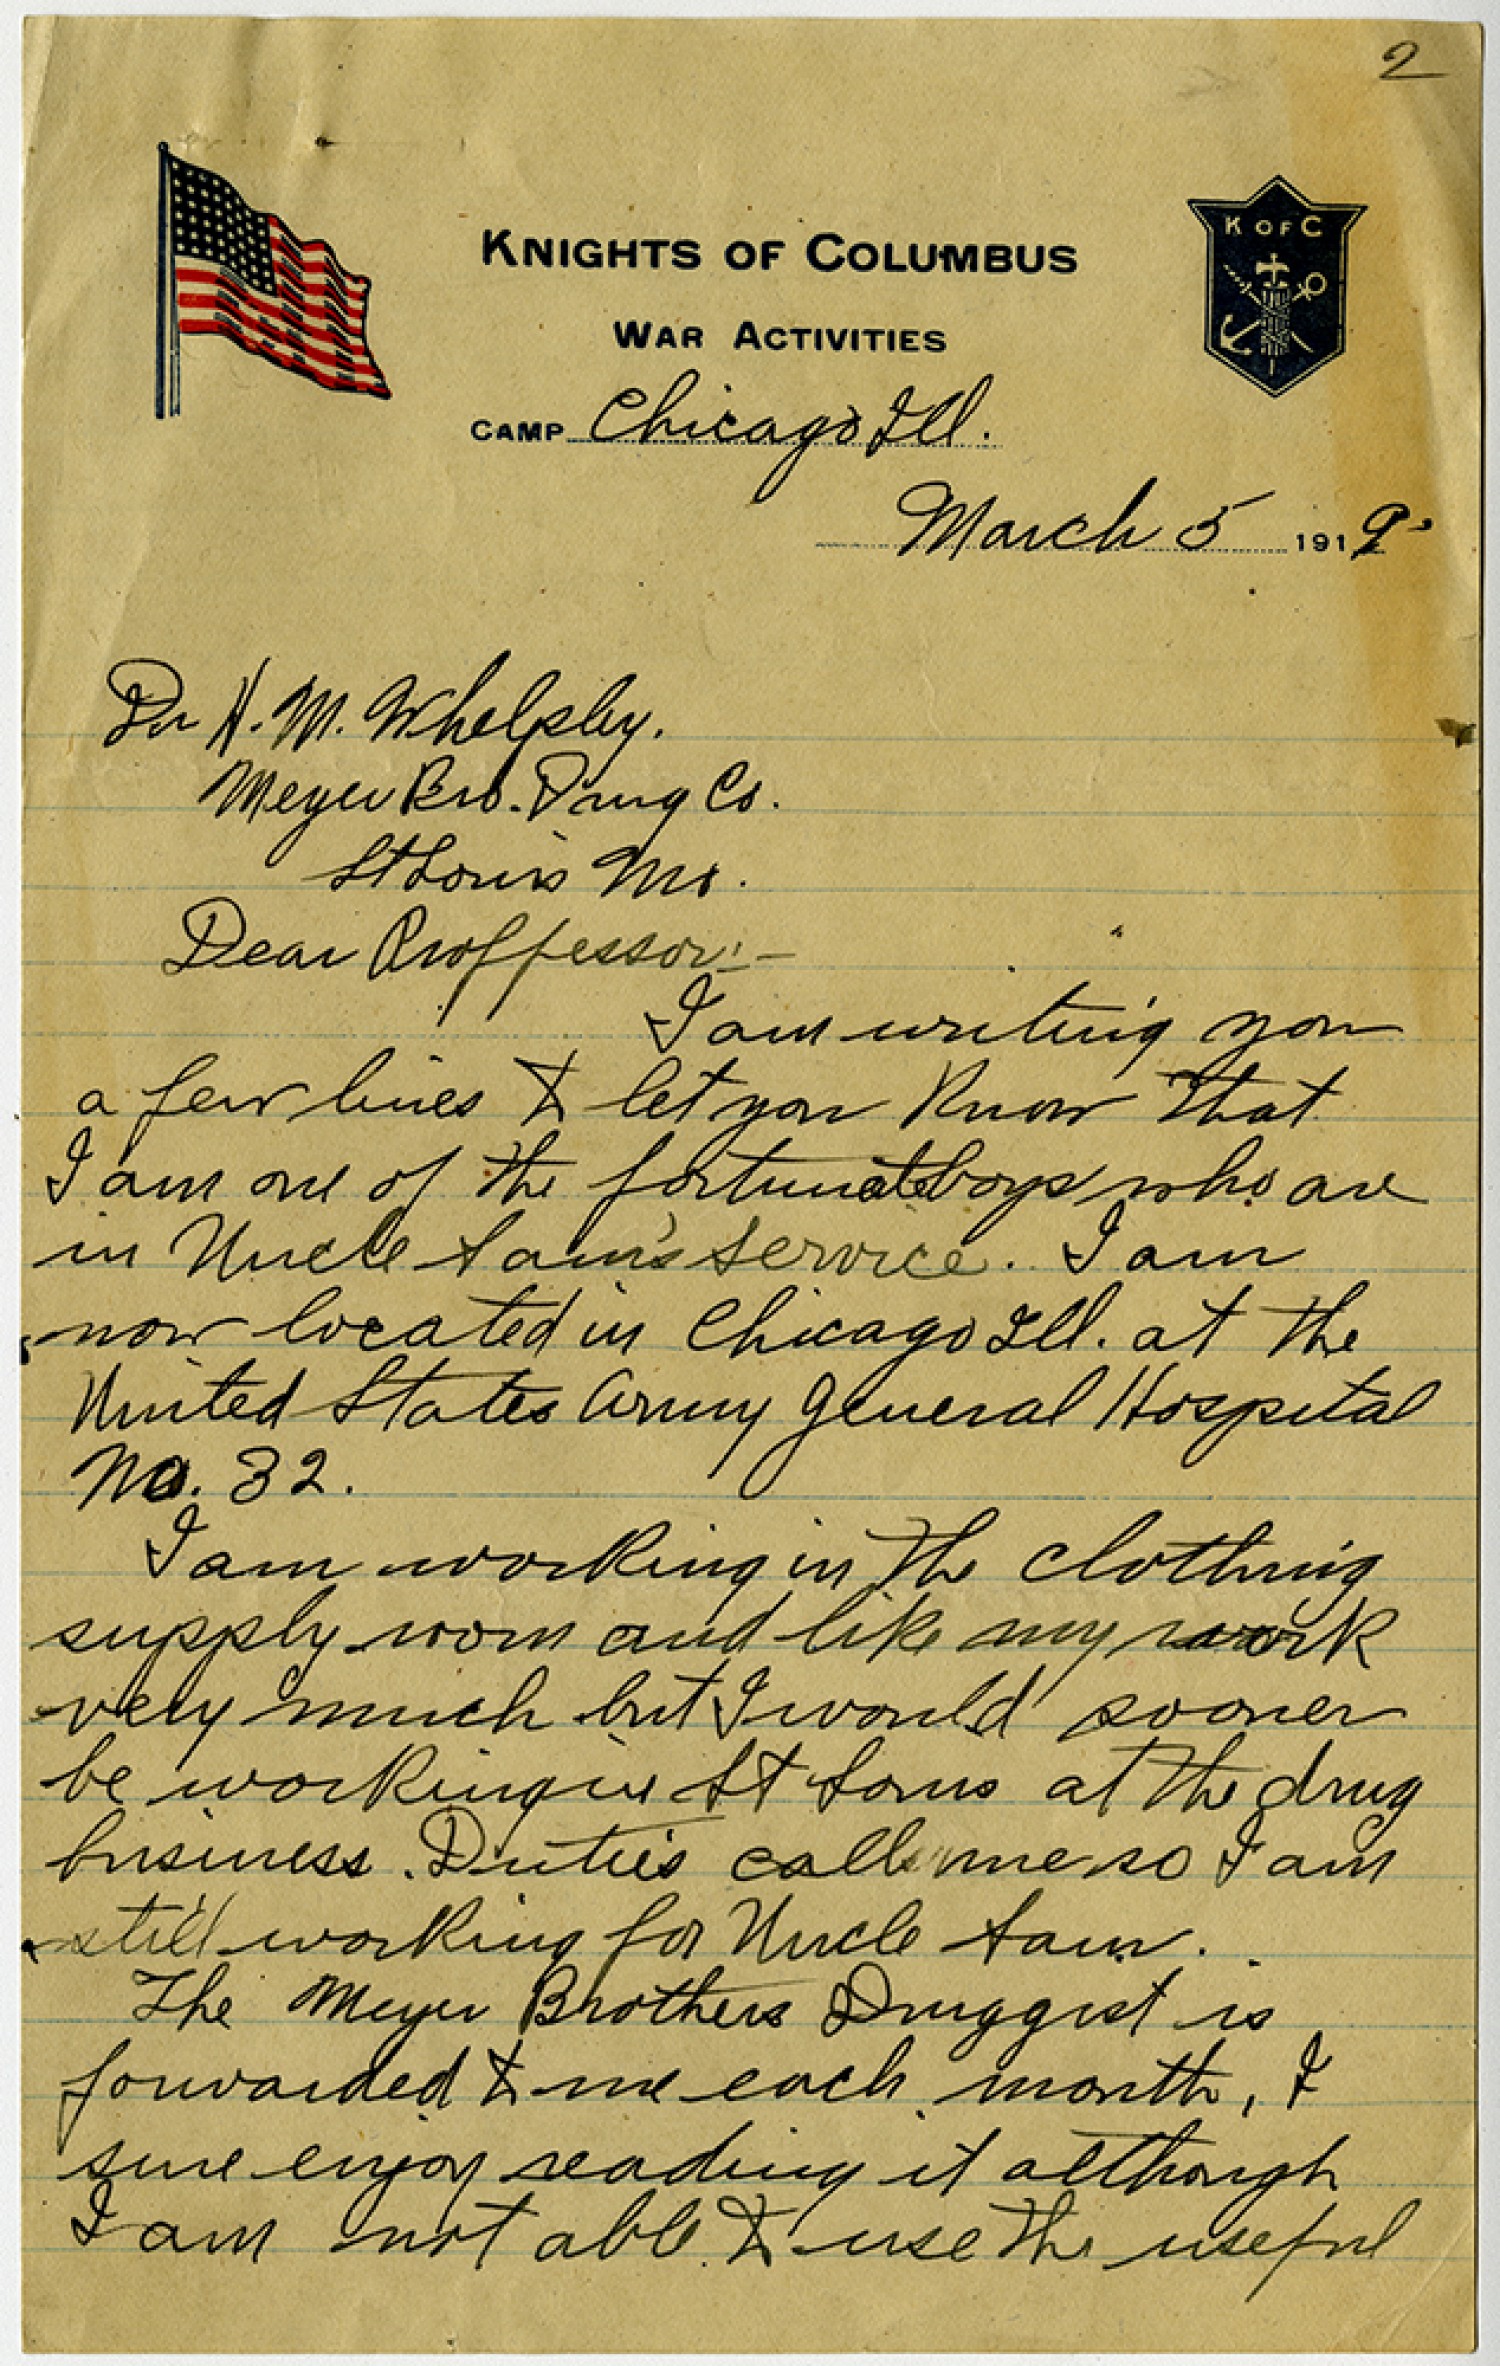 2
KNIGHTS OF COLUMBUS
K OF C
WAR ACTIVITIES
CAMP Chicago Ill.
March 5 1919.
Dr H. M. Whelpley.
Meyer Bro. Drug Co.
St Louis Mo.
Dear Proffessor:-
I am writing you
a few lines to let you know that
I am one of the fortunate boys who are
in Uncle Sam's service. I am
now located in Chicago Ill. at the
United States Army General Hospital
No. 32.
I am working in the clothing
supply room and like my work
very much but I would sooner
be working in St Louis at the drug
business. Duties calls me so I am
still working for Uncle Sam.
The Meyer Brothers Druggist is
forwarded to me each month, I
sure enjoy reading it although
I am not able to use the useful